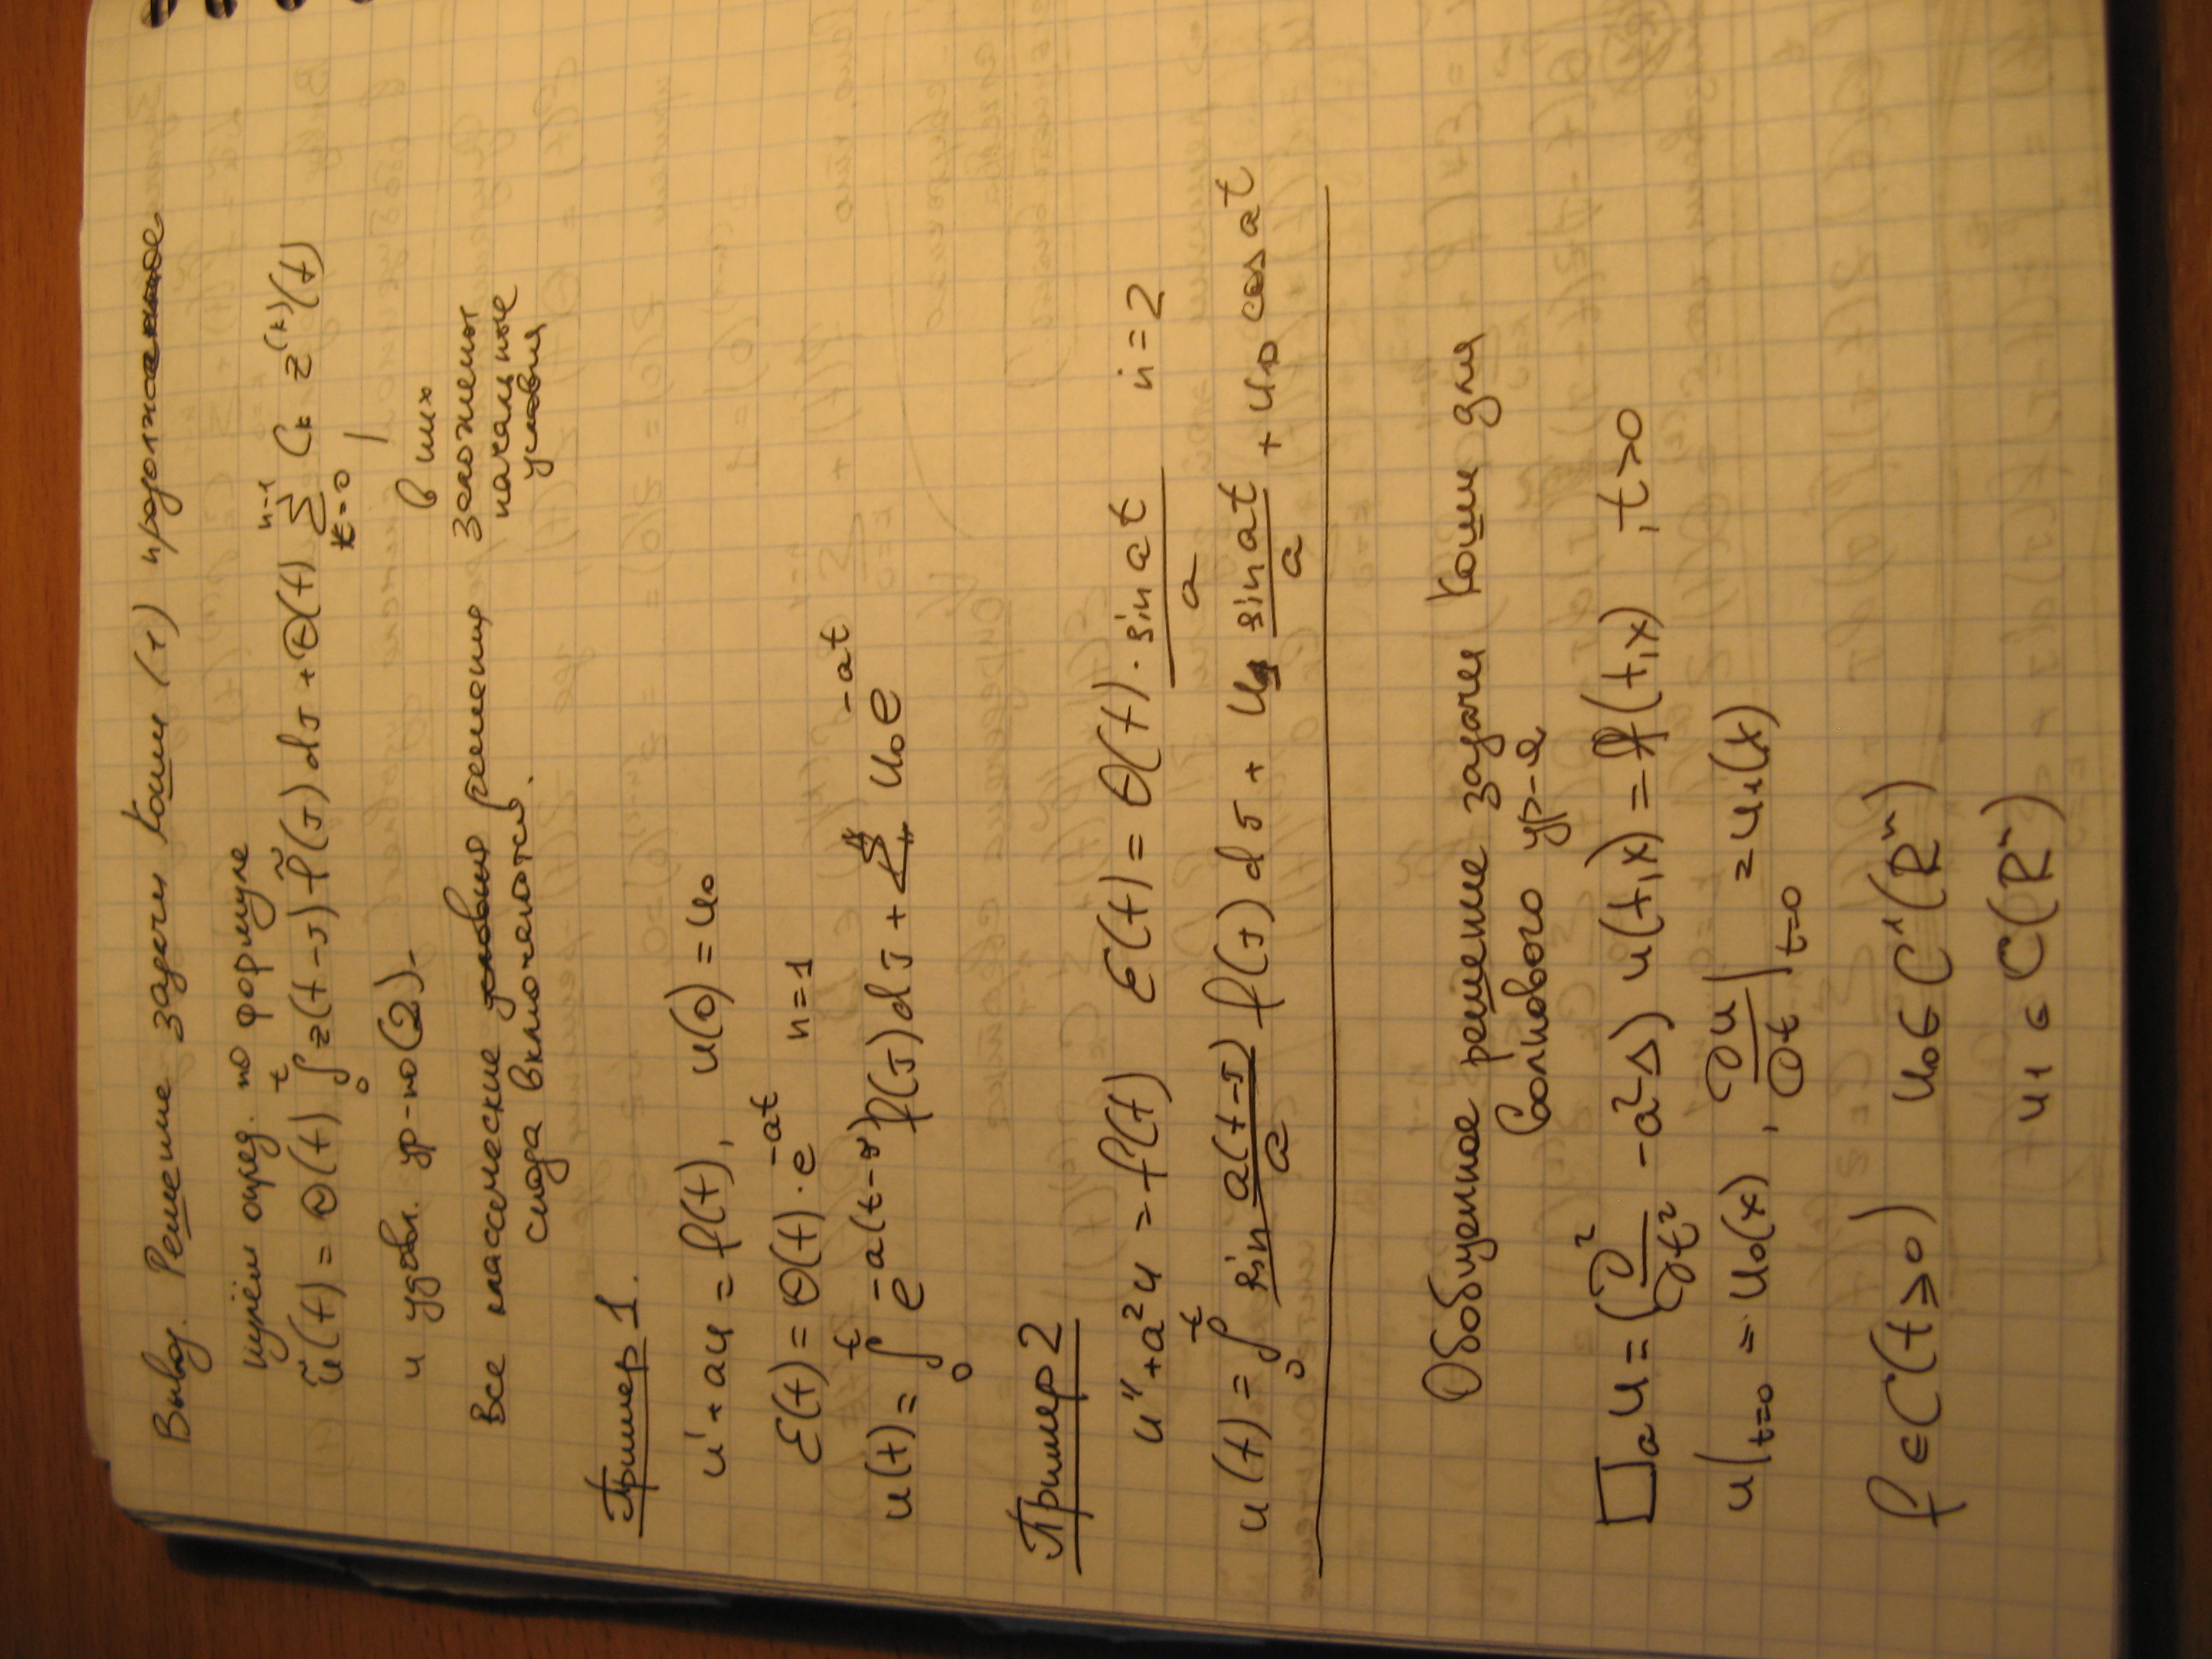 Вывод. Решение задачи Коши (1) продолженное
нулём опред. по формуле
ũ(t) = θ(t) ∫₀ᵗ z(t-τ) f̃(τ) dτ + θ(t) ∑ₖ₌₀ⁿ⁻¹ Cₖ z⁽ᵏ⁾(t)
и удовл. ур-ю (2).
в них
заложены
начальные
условия
Все классические условия решения
сюда включаются.
Пример 1.
u' + au = f(t), u(0) = u₀
Ɛ(t) = θ(t)·e⁻ᵃᵗ n=1
u(t) = ∫₀ᵗ e^{-a(t-τ)} f(τ)dτ + u₀e^{-at}
Пример 2
u'' + a²u = f(t) Ɛ(t) = θ(t)· sin at / a n=2
u(t) = ∫₀ᵗ sin a(t-τ) / a f(τ)dτ + u₁ sin at / a + u₀ cos at
Обобщенное решение задачи Коши для
волнового ур-я
□ₐu = (∂²/∂t² - a²Δ) u(t,x) = f(t,x) , t>0
u|ₜ₌₀ = u₀(x) , ∂u/∂t|ₜ₌₀ = u₁(x)
f ∈ C(t ≥ 0) u₀ ∈ C¹(Rⁿ)
u₁ ∈ C(Rⁿ)